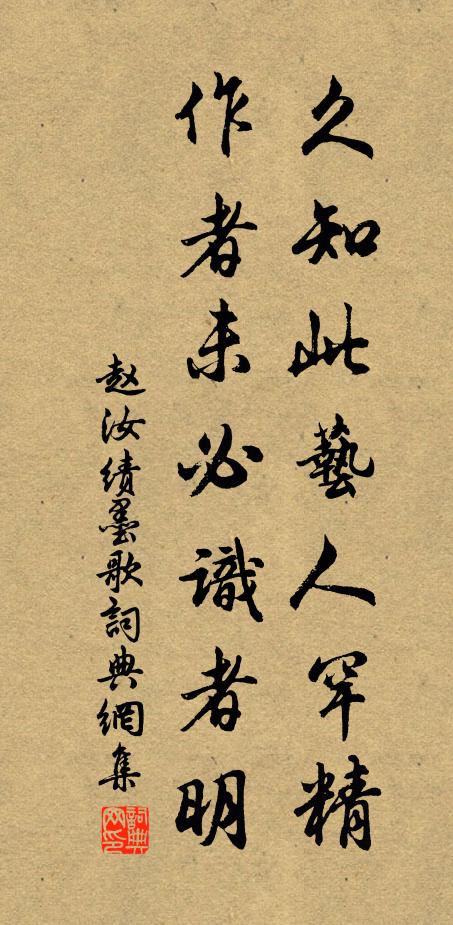 久知此藝人罕精
作者未必識者明
赵汝績墨歌詞典網集
詞典网印